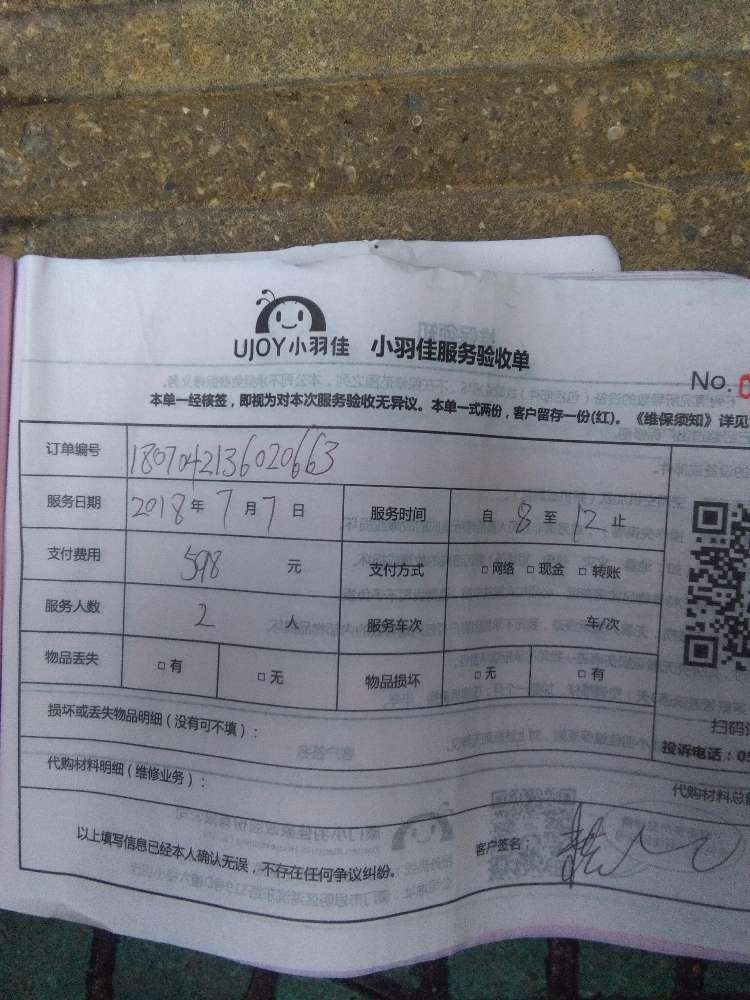 UJOY小羽佳 小羽佳服务验收单
No.
本单一经核签，即视为对本次服务验收无异议。本单一式两份，客户留存一份(红)。《维保须知》详见
订单编号 1807042136020663
服务日期 2018年7月7日 服务时间 自8至12止
支付费用 598元 支付方式 □网络 □现金 □转账
服务人数 2人 服务车次 车/次
物品丢失 □有 □无 物品损坏 □无 □有
损坏或丢失物品明细（没有可不填）：
扫码
投诉电话：05
代购材料明细（维修业务）：
代购材料总
以上填写信息已经本人确认无误，不存在任何争议纠纷。
客户签名：